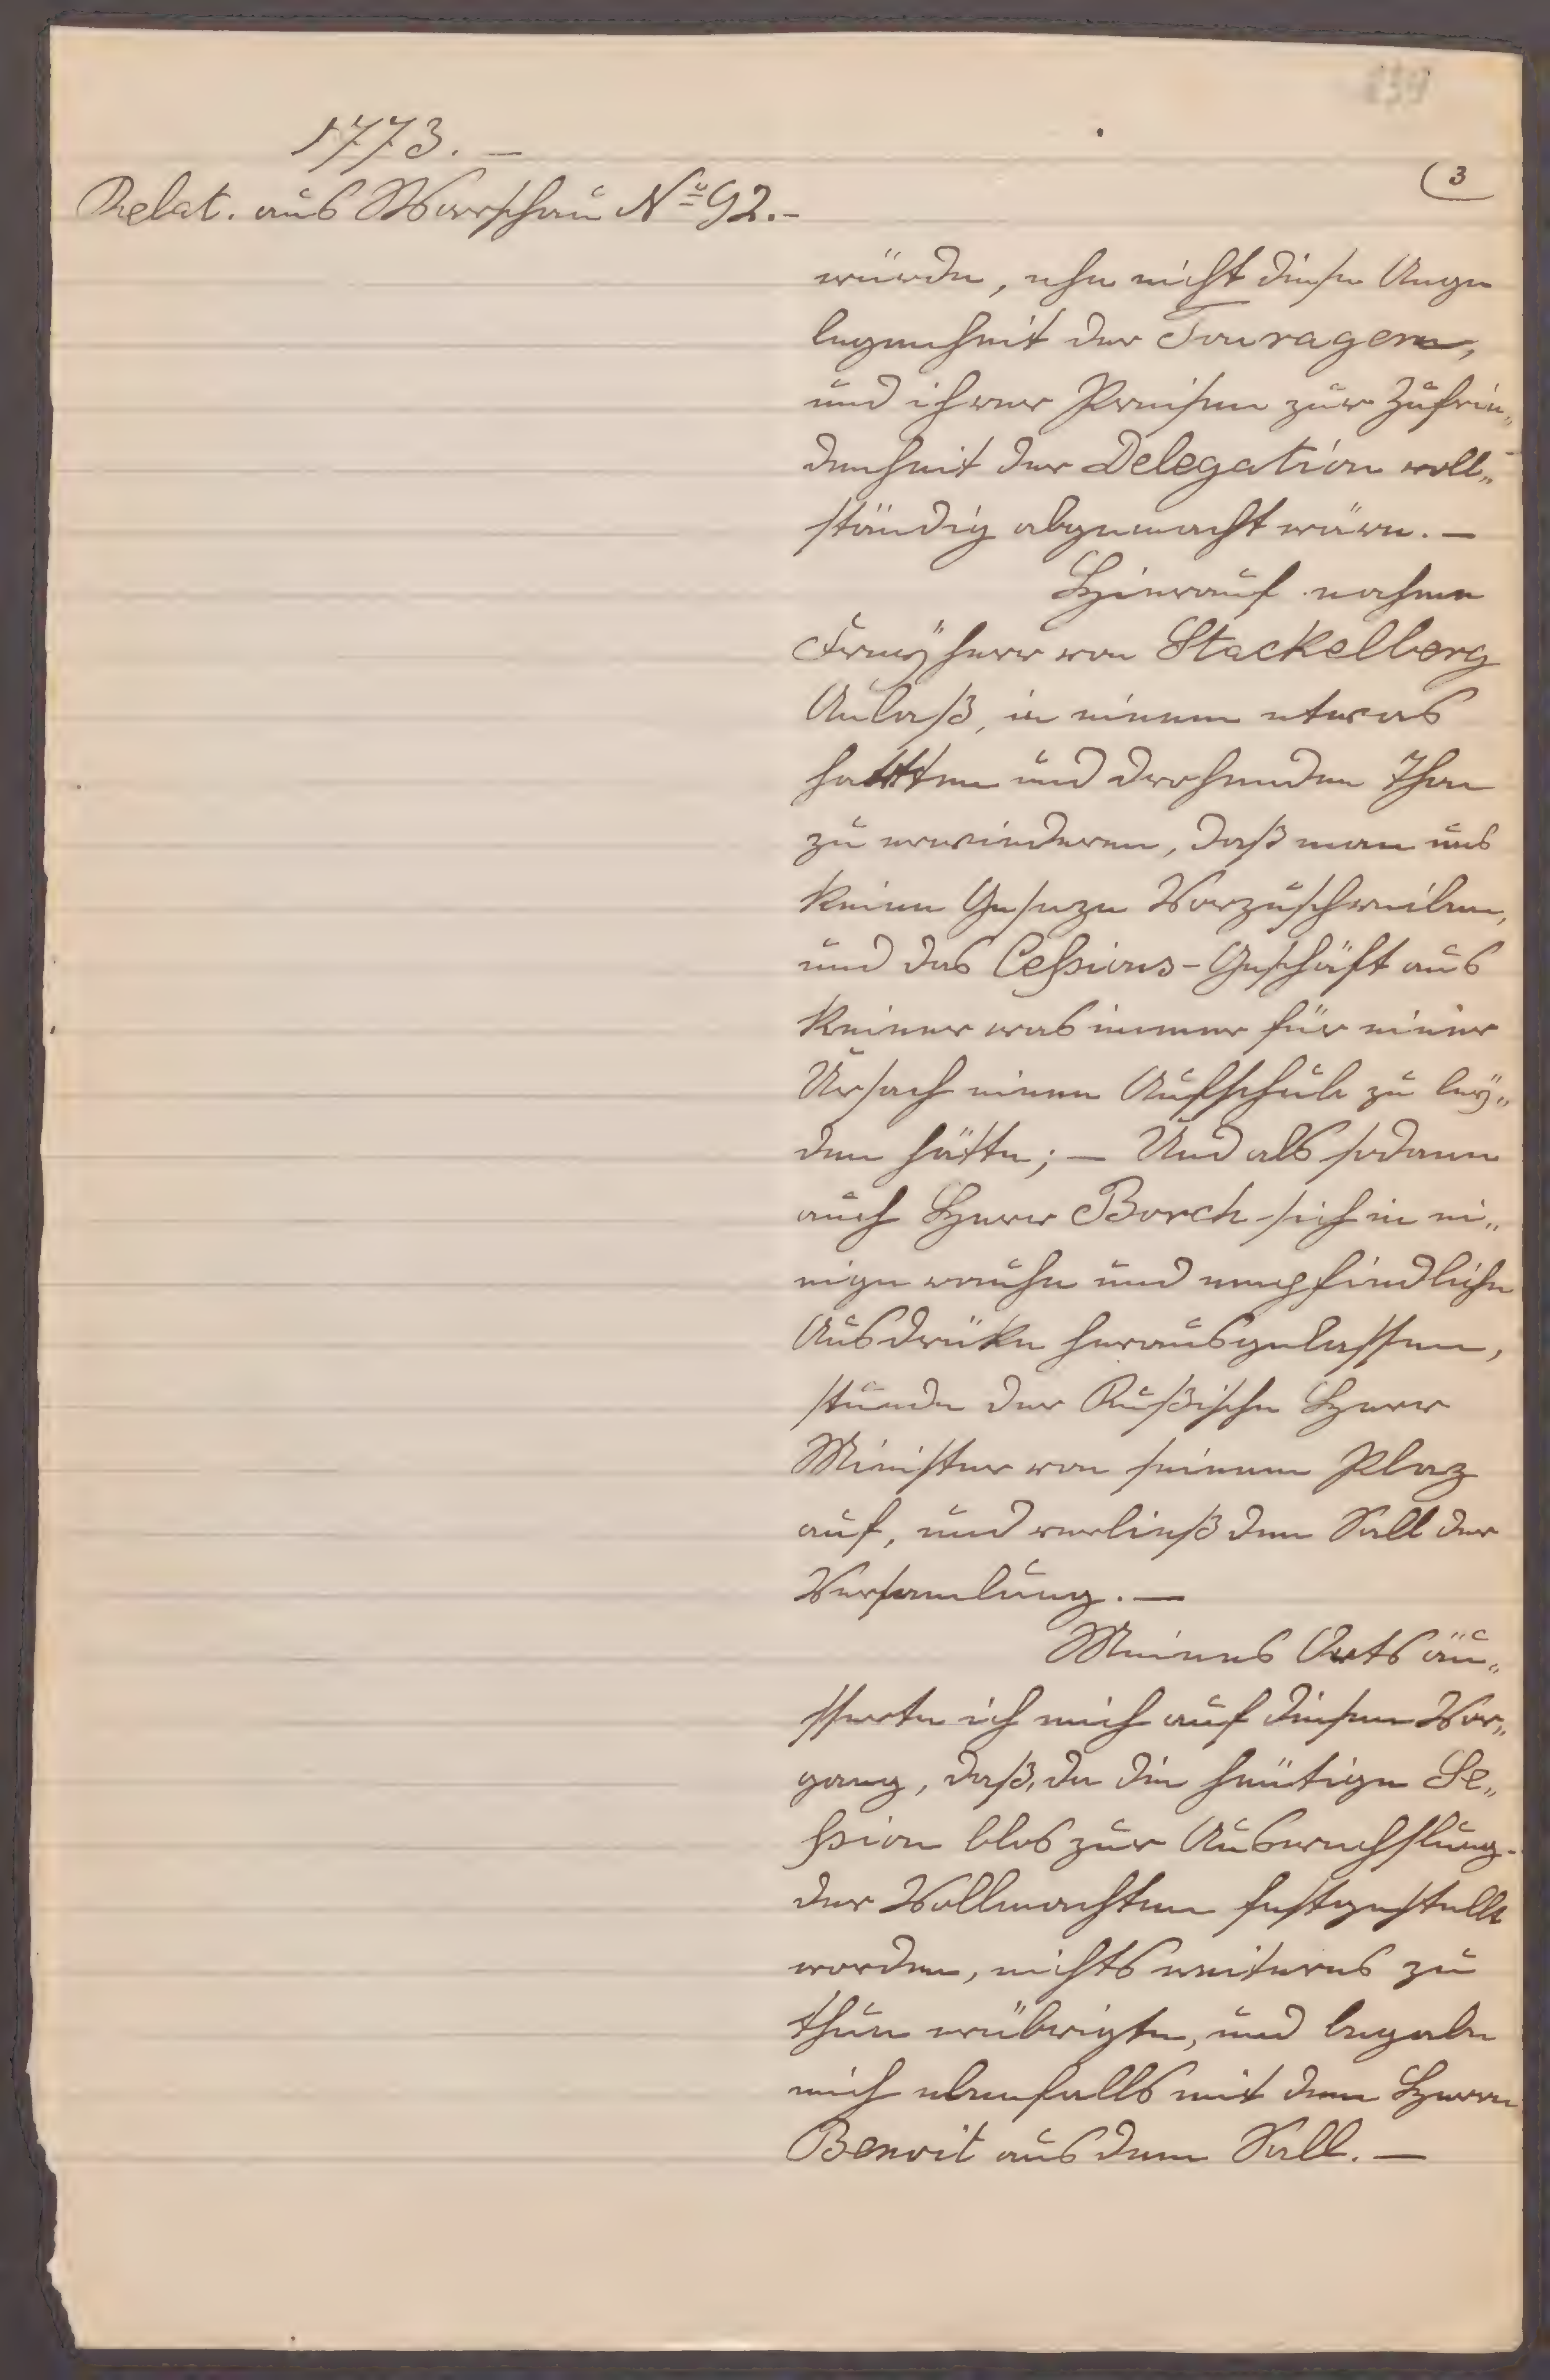 239
1773. –
(3
Relat. aus Warschau No 92. –
würde, ehe nicht diese Ange
legenheit der Fouragen,
und ihrer Preisen zur Zufrie„
denheit der Delegation voll„
ständig abgemacht wäre. –
Hierauf nahme
Freyherr von Stackelberg
Anlaß, in einem etwas
hartten und drohenden Thon
zu erwiederen, daß man uns
keine Geseze Vorzuschreiben,
und das Cessions-Geschäft aus
keiner was immer für einer
Ursach einen Aufschub zu ley„
den hätte; – Und als sodann
auch Herr Borch sich in ei„
nige rauhe und empfindliche
Ausdrüke herausgelassen,
stunde der Rußische Herr
Minister von seinem Plaz
auf, und verließ den Sall der
Versamlung. –
Meines Orts äu„
sserte ich mich auf diesen Vor„
gang, daß, da die heütige Se„
ssion blos zur Auswechslung
der Vollmachten festgestellt
worden, nichts weiteres zu
thun erübrigte, und begabe
mich ebenfalls mit dem Herrn
Benoit aus dem Sall. –